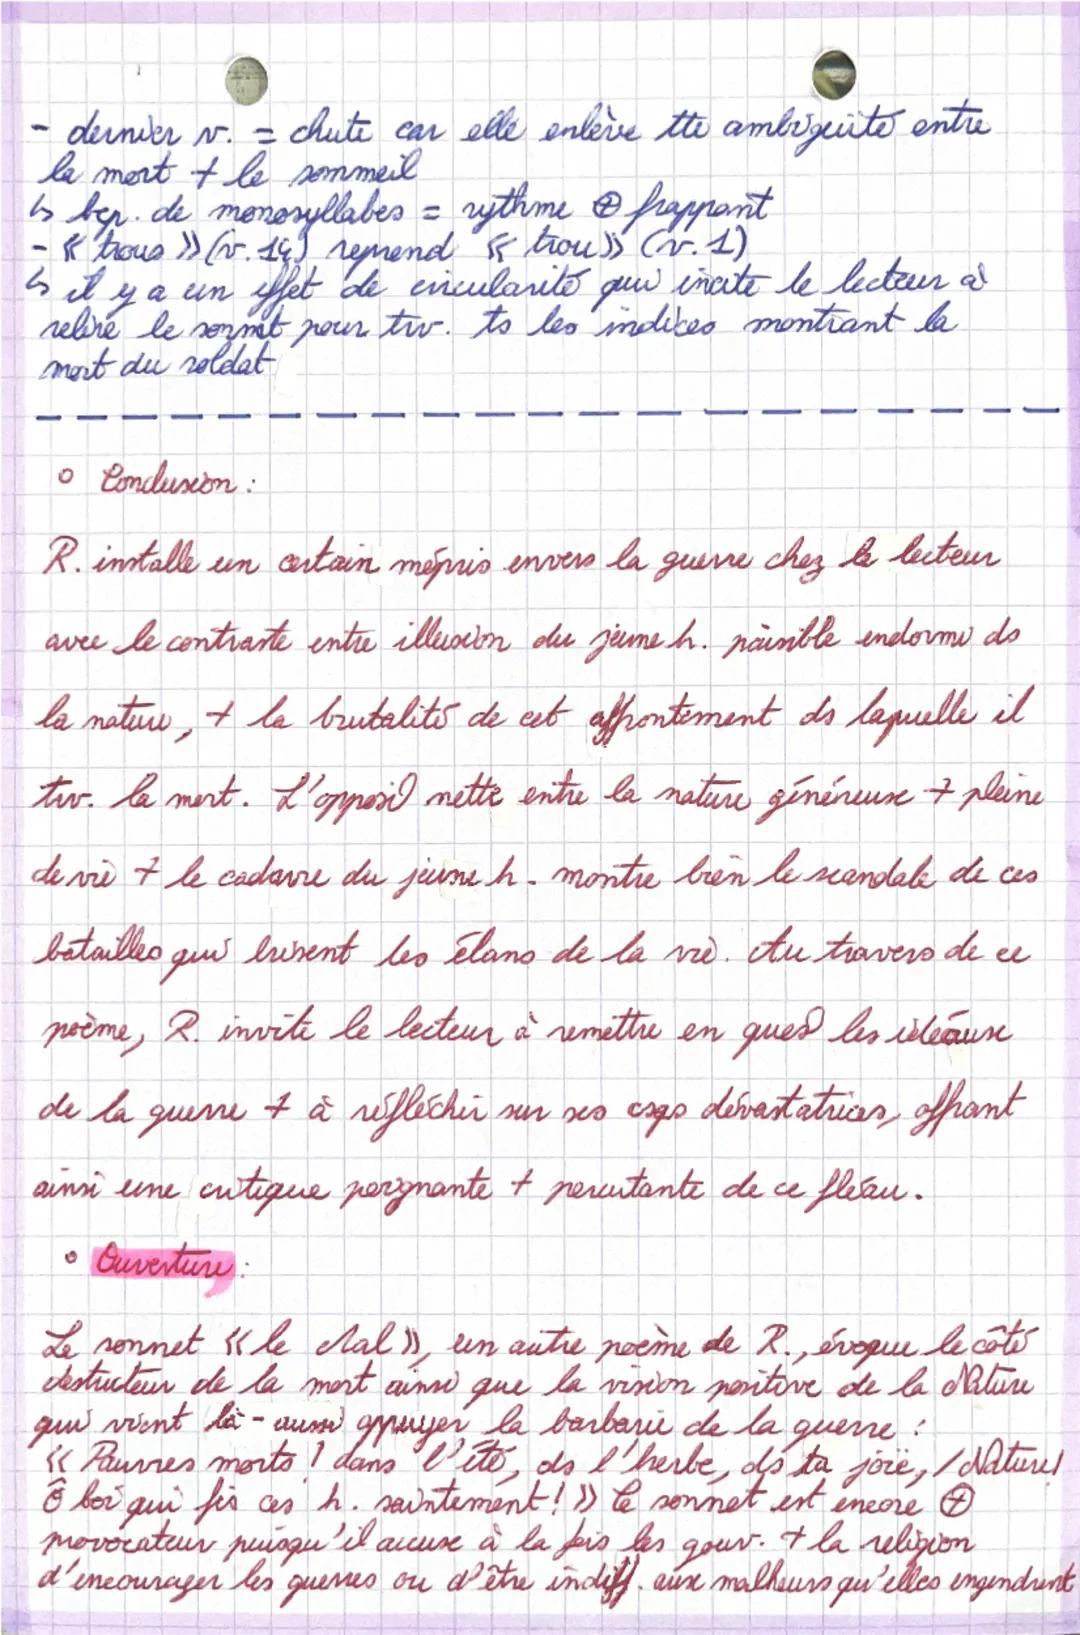 - dernier v. = chute car elle enlève tte ambiguité entre
la mort + le sommeil
↳ bcp. de monosyllabes = rythme ⊕ frappant
- « trous » (v. 14) reprend « trou » (v. 1)
↳ il y a un effet de circularité qui incite le lecteur à
relire le sonnet pour trv. ts les indices montrant la
mort du soldat
○ Conclusion :
R. installe un certain mépris envers la guerre chez le lecteur
avec le contraste entre illusion du jeune h. paisible endormi ds
la nature, + la brutalité de cet affrontement ds laquelle il
trv. la mort. L'opposi° nette entre la nature généreuse + pleine
de vie + le cadavre du jeune h. montre bien le scandale de ces
batailles qui brisent les élans de la vie. Au travers de ce
poème, R. invite le lecteur à remettre en ques° les idéaux
de la guerre + à réfléchir sur ses csqs dévastatrices, offrant
ainsi une critique poignante + percutante de ce fléau.
○ Ouverture :
Le sonnet « le Mal », un autre poème de R., évoque le côté
destructeur de la mort ainsi que la vision positive de la Nature
qui vient là-aussi appuyer la barbarie de la guerre :
« Pauvres morts ! dans l'été, ds l'herbe, ds ta joie, / Nature !
Ô toi qui fis ces h. saintement ! » Ce sonnet est encore ⊕
provocateur puisqu'il accuse à la fois les gouv. + la religion
d'encourager les guerres ou d'être indiff. aux malheurs qu'elles engendrent